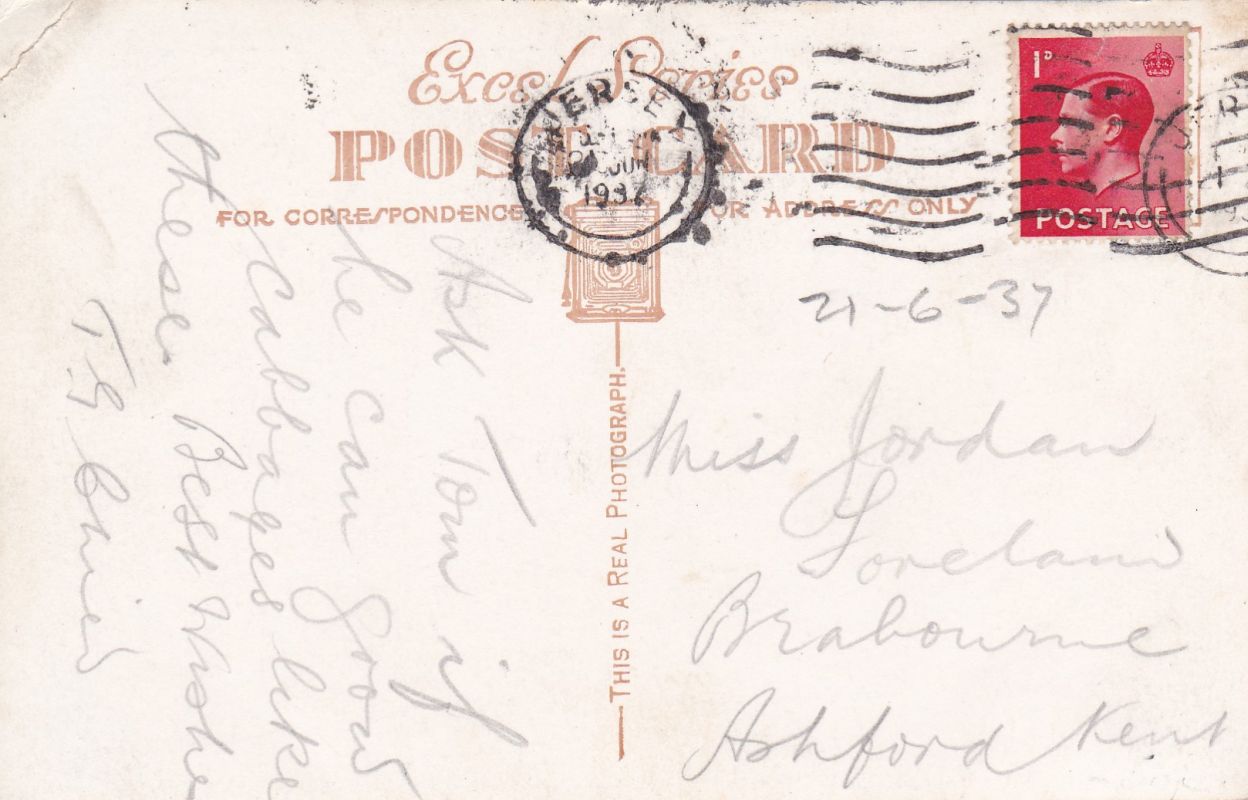 Excel Series
POST CARD
FOR CORRESPONDENCE
FOR ADDRESS ONLY
GUERNSEY
JUN
1937
1D
POSTAGE
21-6-37
THIS IS A REAL PHOTOGRAPH.
Ask Tom if
he can grow
Cabbages like
these Best Wishes
Miss Jordan
Brabourne
Ashford Kent